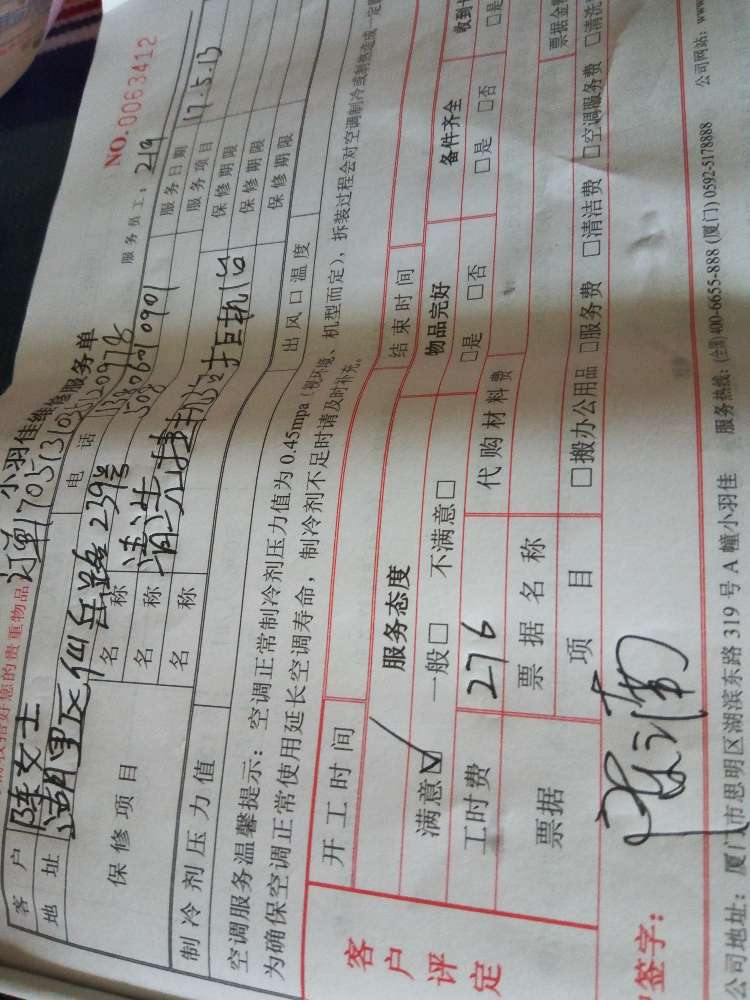 NO.0063412
小羽佳维修服务单
服务员工：219
您的贵重物品
客户 陈女士 电话 服务日期 17.5.13
地址 湖里区仙岳路239号 服务项目
保修项目
名称 清洗 保修期限
名称 保修期限
名称 保修期限
制冷剂压力值 出风口温度
空调服务温馨提示：空调正常制冷剂压力值为0.45mpa（视环境、机型而定），拆装过程会对空调制冷或制热造成一定
为确保空调正常使用延长空调寿命，制冷剂不足时请及时补充。
客户评定
开工时间 结束时间
服务态度 物品完好 备件齐全 收到
满意☑ 一般□ 不满意□ □是 □否 □是 □否 □是
工时费 276 代购材料费
票据 票据名称 票据金额
项目 □搬办公用品 □服务费 □清洁费 □空调服务费 □清洗
签字：
公司地址：厦门市思明区湖滨东路319号A幢小羽佳 服务热线：(全国)400-6655-888 (厦门) 0592-5178888 公司网站：www